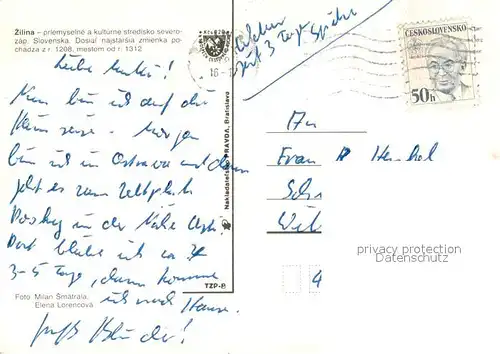 Žilina – priemyselné a kultúrne stredisko severo-
záp. Slovenska. Dosiaľ najstaršia zmienka po-
chádza z r. 1208, mestom od r. 1312
Liebe
Nun bin ich auf der
Heimreise. Morgen
bin ich in Ostrava und dann
geht es zum Zeltplatz
in der Nähe
Dort bleibe ich ca
3-5 Tage, dann komme
ich nach Hause.
Foto Milan Šmátrala,
Elena Lorencová
TZP-8
Nakladateľstvo PRAVDA, Bratislava
3 Tage später
ČESKOSLOVENSKO
50h
An
Frau R
4
privacy protection
Datenschutz